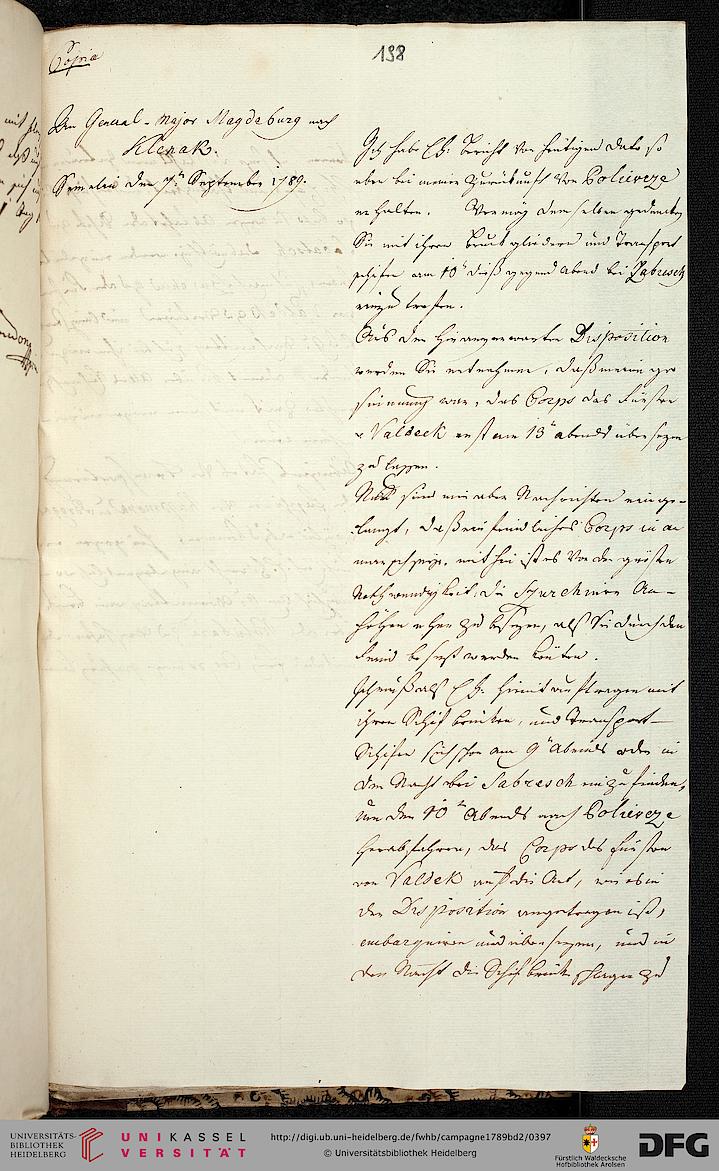 Copia
198
Dem General-Major Magdeburg nach
Klenak.
Semelin den 7ten September 1789.
Ich habe Ew. Bericht von heutigen dato so
eben bei meiner Zurückunft von Bolievcze
erhalten. Vermög demselben gedencken
Sie mit ihren Bruckgliedern und Transport
schiffen am 10t dieß gegend Abend bei Zabresch
einzutreffen.
Aus der hierangewarten Disposition
werden Sie entnehmen, daß meine ge
sinnung war, das Corps des Fürsten
v Valdeck erst am 13t abends übersezen
zu lassen.
Nun sind mir aber Nachrichten einge-
langt, daß ein feindliches Corps in an
marsch seye, mithin ist es von der grösten
Nothwendigkeit, die Syurchiner An-
höhen eher zu besezen, als Sie durch den
Feind besezt werden könten.
Ich muß also Ew. hiemit auftragen mit
ihren Schifbrücken, und Transport
Schiffen sich schon am 9t Abends oder in
der Nacht bei Sabresch einzufinden,
um den 10ten Abends nach Bolievcze
herabfahren, das Corps des Fürsten
von Valdek auf die Art, wie es in
der Disposition angetragen ist,
embarquiren und übersezen, und in
der Nacht die Schifbrücke schlagen zu
UNIVERSITÄTS-
BIBLIOTHEK
HEIDELBERG
UNIKASSEL
VERSITÄT
http://digi.ub.uni-heidelberg.de/fwhb/campagne1789bd2/0397
© Universitätsbibliothek Heidelberg
Fürstlich Waldecksche
Hofbibliothek Arolsen
DFG